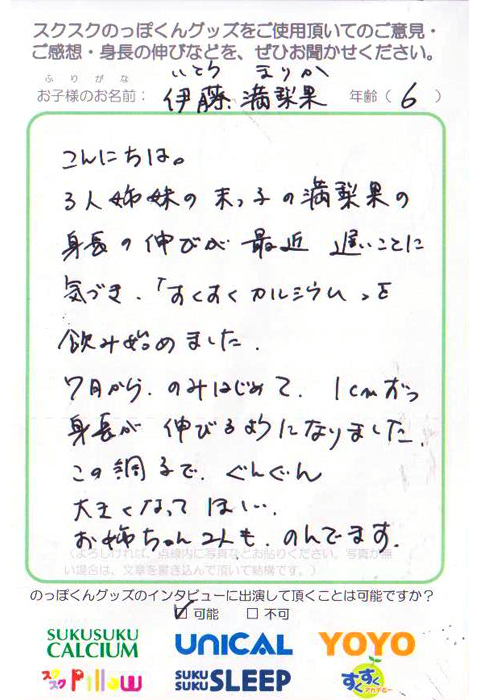 スクスクのっぽくんグッズをご使用頂いてのご意見・
ご感想・身長の伸びなどを、ぜひお聞かせください。
ふりがな いとう まりか
お子様のお名前: 伊藤 満梨果 年齢(6)
こんにちは。
3人姉妹の末っ子の満梨果の
身長の伸びが最近 遅いことに
気づき、「すくすくカルシウム」を
飲み始めました.
7月から、のみはじめて、1cmずつ
身長が 伸びるようになりました.
この調子で、ぐんぐん
大きくなってほしい.
お姉ちゃん2人も、のんでます.
(よろしければ、点線内に写真などお貼りください。写真が無
い場合は、文章を書き込んで頂いて結構です。)
のっぽくんグッズのインタビューに出演して頂くことは可能ですか?
☑ 可能 □ 不可
SUKUSUKU CALCIUM UNICAL YOYO
スクスク Pillow SUKU SUKU SLEEP すくすくアカデミー